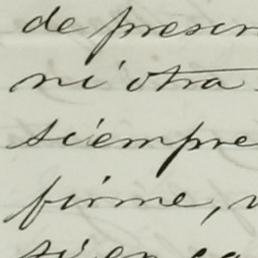 de presen
ni otra
siempre
firme,
si en ca